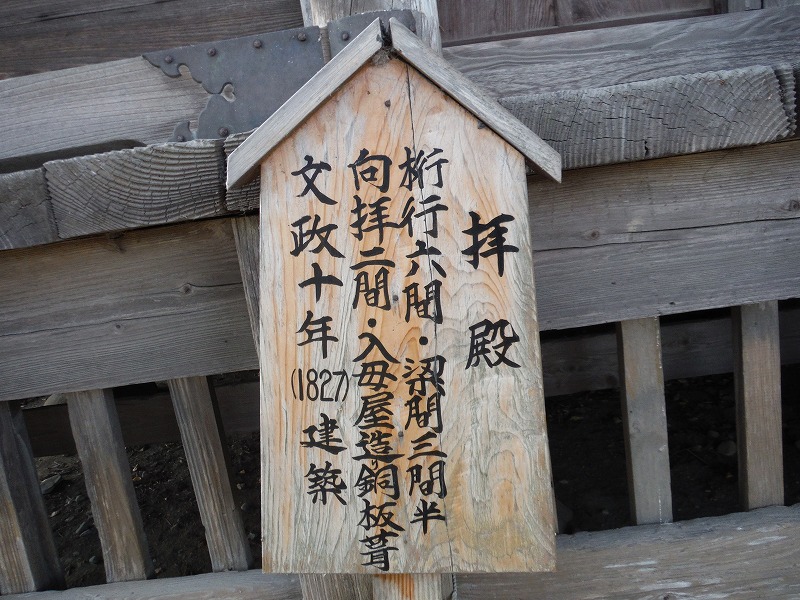 拝殿
桁行六間・梁間三間半
向拝二間・入母屋造り銅板葺
文政十年(1827)建築